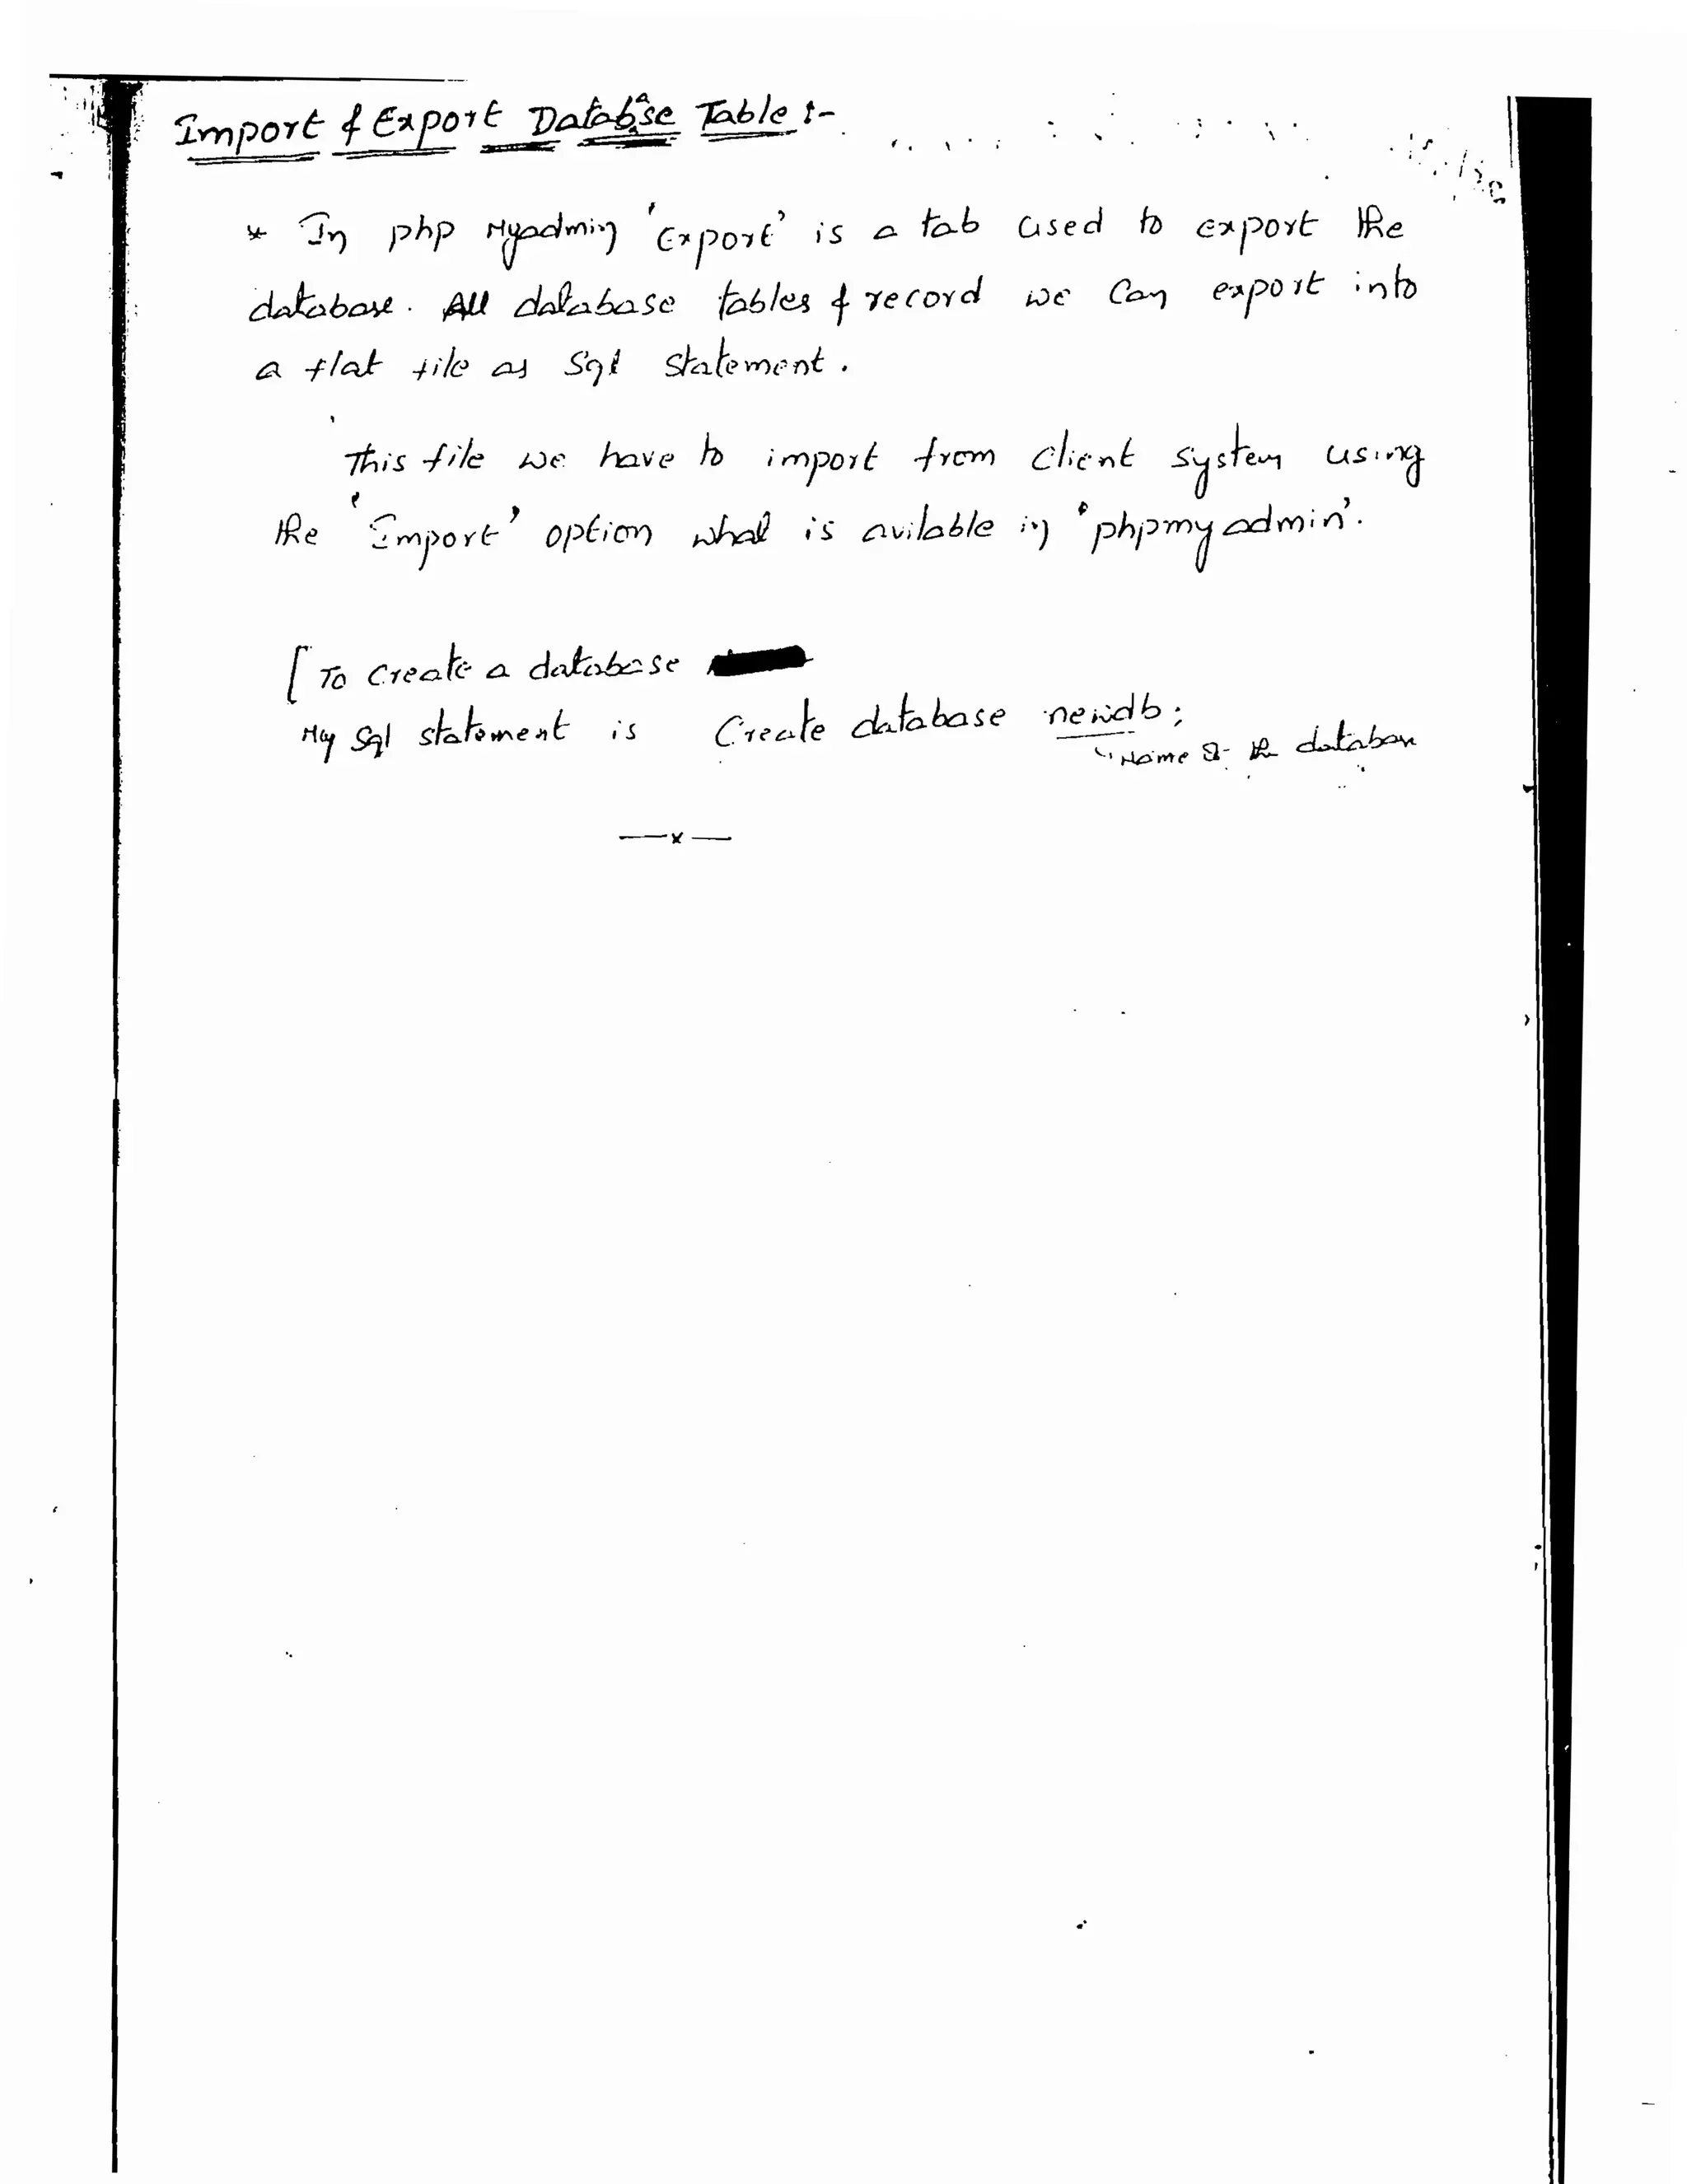 Import & Export Database Table :-
* In php Myadmin 'Export' is a tab used to export the
database. All database tables & record we can export into
a flat file as Sql statement.
This file we have to import from client system using
the 'Import' option what is avilable in 'phpmyadmin'.
[ To create a database
My Sql statement is Create database newdb;
Name of the database
—x—